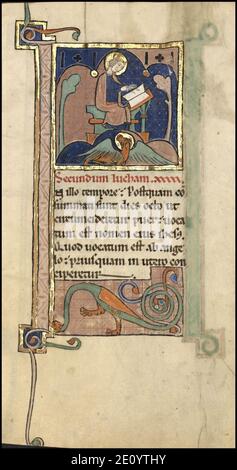 Secundum lucham. xxxx.
In illo tempore: Postquam cō
summati sunt dies octo ut
circumcideretur puer: uoca
tum est nomen eius ihesus.
Quod uocatum est ab ange
lo: priusquam in utero con
ciperetur.
alamy
Image ID: 2E0YTHY
www.alamy.com